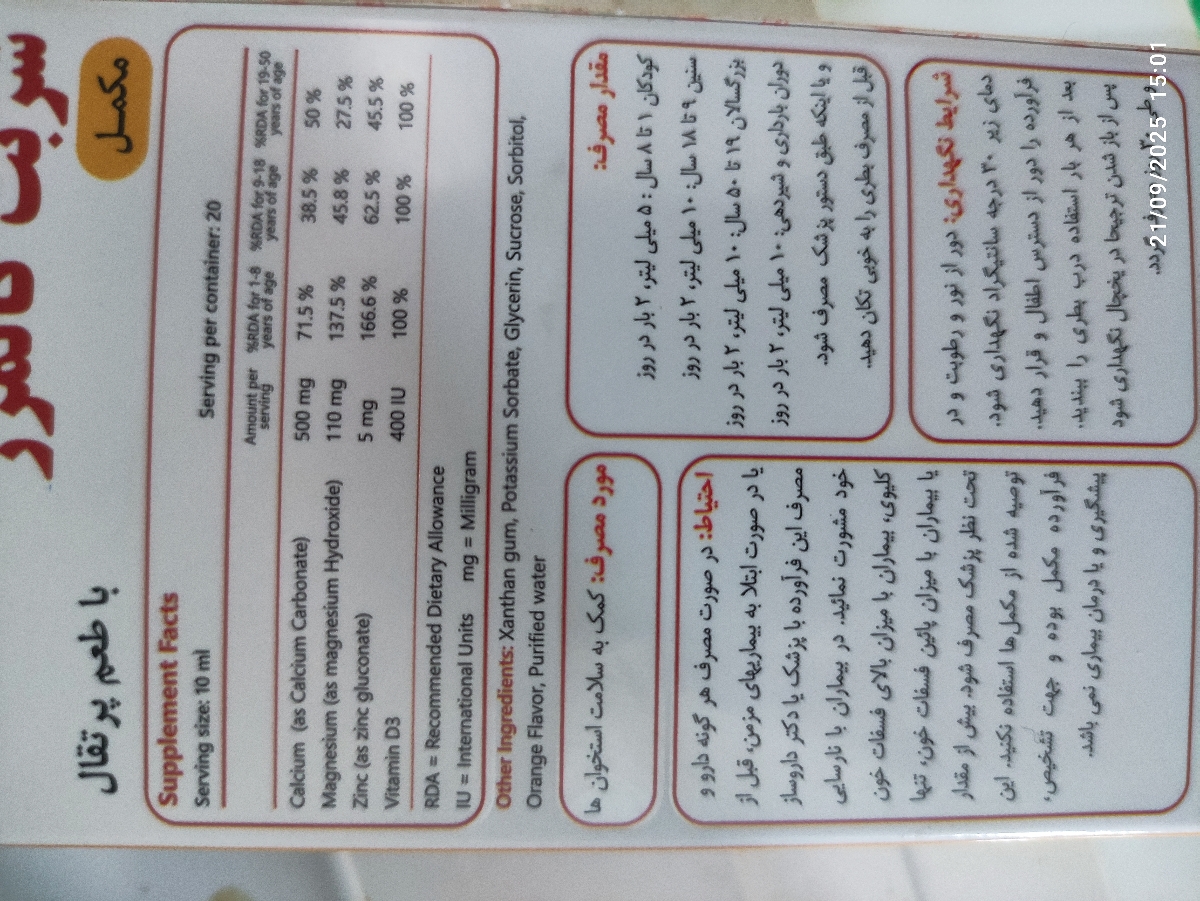 شربت کالفرد
مکمل
با طعم پرتقال
Supplement Facts
Serving size: 10 ml Serving per container: 20
Amount per serving %RDA for 1-8 years of age %RDA for 9-18 years of age %RDA for 19-50 years of age
Calcium (as Calcium Carbonate) 500 mg 71.5 % 38.5 % 50 %
Magnesium (as magnesium Hydroxide) 110 mg 137.5 % 45.8 % 27.5 %
Zinc (as zinc gluconate) 5 mg 166.6 % 62.5 % 45.5 %
Vitamin D3 400 IU 100 % 100 % 100 %
RDA = Recommended Dietary Allowance
IU = International Units mg = Milligram
Other Ingredients: Xanthan gum, Potassium Sorbate, Glycerin, Sucrose, Sorbitol,
Orange Flavor, Purified water
مورد مصرف: کمک به سلامت استخوان ها
مقدار مصرف:
کودکان ۱ تا ۸ سال : ۵ میلی لیتر، ۲ بار در روز
سنین ۹ تا ۱۸ سال: ۱۰ میلی لیتر، ۲ بار در روز
بزرگسالان ۱۹ تا ۵۰ سال: ۱۰ میلی لیتر، ۲ بار در روز
دوران بارداری و شیردهی: ۱۰ میلی لیتر، ۲ بار در روز
و یا اینکه طبق دستور پزشک مصرف شود.
قبل از مصرف بطری را به خوبی تکان دهید.
احتیاط: در صورت مصرف هر گونه دارو و
یا در صورت ابتلا به بیماریهای مزمن، قبل از
مصرف این فرآورده با پزشک یا دکتر داروساز
خود مشورت نمائید. در بیماران با نارسایی
کلیوی، بیماران با میزان بالای فسفات خون
یا بیماران با میزان پائین فسفات خون، تنها
تحت نظر پزشک مصرف شود. بیش از مقدار
توصیه شده از مکمل‌ها استفاده نکنید. این
فرآورده مکمل بوده و جهت تشخیص،
پیشگیری و یا درمان بیماری نمی باشد.
شرایط نگهداری: دور از نور و رطوبت و در
دمای زیر ۳۰ درجه سانتیگراد نگهداری شود.
فرآورده را دور از دسترس اطفال و قرار دهید.
بعد از هر بار استفاده درب بطری را ببندید.
پس از باز شدن ترجیحا در یخچال نگهداری شود
گردد.
21/09/2025 15:01